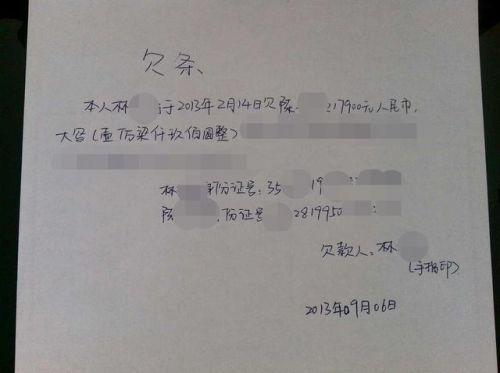 欠条
本人林 于2013年2月14日欠 17900元人民币.
大写(壹万柒仟玖佰圆整)
林 身份证号:35 19
份证号 2819950
欠款人:林
(手指印)
2013年09月06日